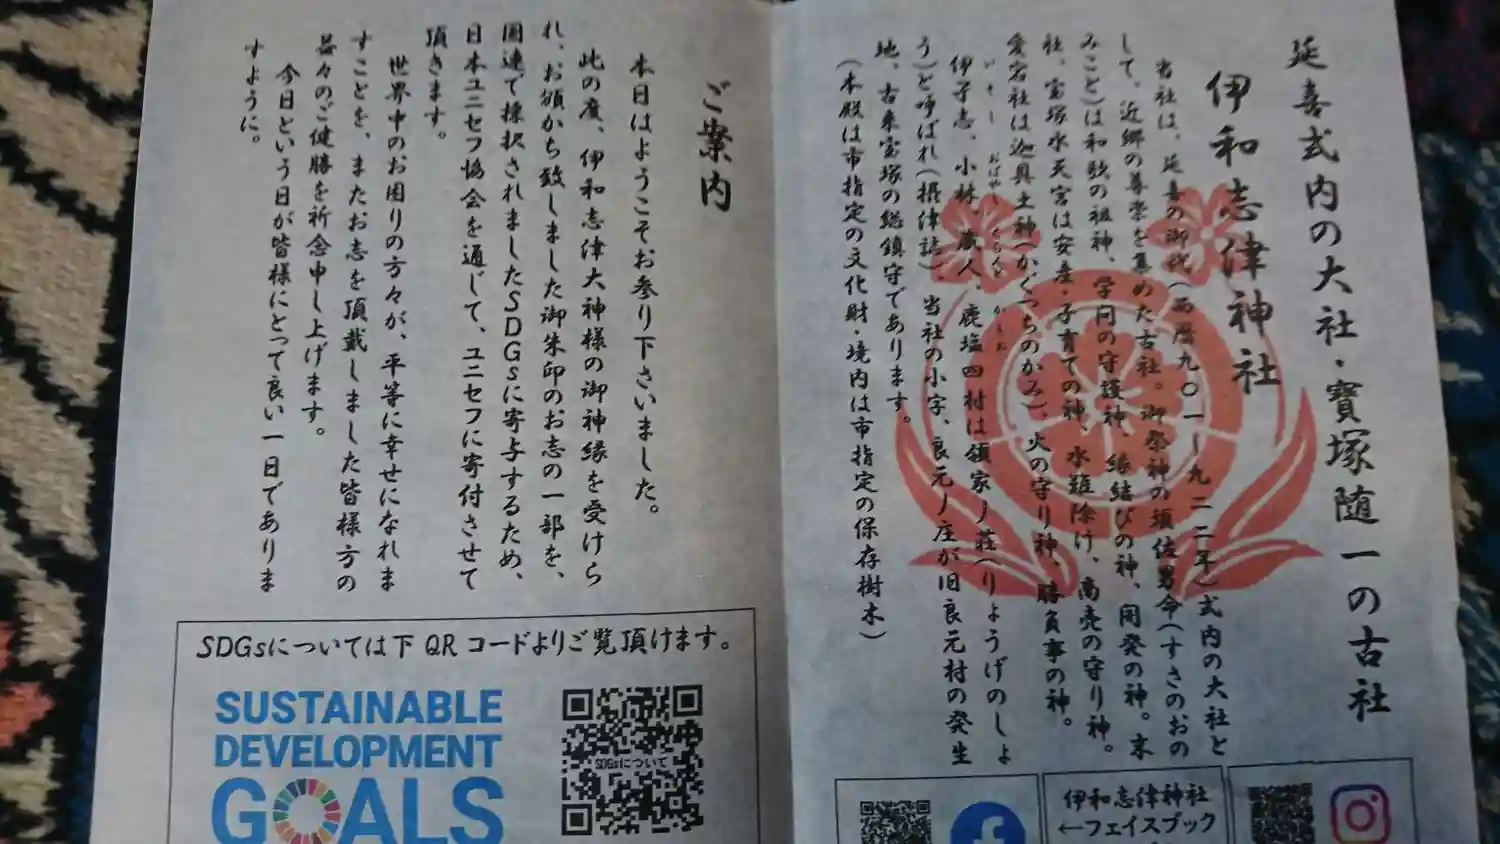 延喜式内の大社・寶塚随一の古社
伊和志津神社
当社は、延喜の御代(西暦九〇一ー九二二年)式内の大社と
して、近郷の尊崇を集めた古社。御祭神の須佐男命(すさのおの
みこと)は和歌の祖神、学問の守護神、縁結びの神、開発の神。末
社、宝塚水天宮は安産・子育ての神、水難除け、商売の守り神。
愛宕社は迦具土神(かぐつちのかみ)、火の守り神、勝負事の神。
いそし おばやし くらんど かしお
伊孑志、小林、蔵人、鹿塩四村は領家ノ荘(りょうげのしょ
う)と呼ばれ(摂津誌)、当社の小字、良元ノ庄が旧良元村の発生
地、古来宝塚の総鎮守であります。
(本殿は市指定の文化財・境内は市指定の保存樹木)
伊和志津神社
←フェイスブック
ご案内
本日はようこそお参り下さいました。
此の度、伊和志津大神様の御神縁を受けら
れ、お頒かち致しました御朱印のお志の一部を、
国連で採択されましたSDGsに寄与するため、
日本ユニセフ協会を通じて、ユニセフに寄付させて
頂きます。
世界中のお困りの方々が、平等に幸せになれま
すことを、またお志を頂戴しました皆様方の
益々のご健勝を祈念申し上げます。
今日という日が皆様にとって良い一日でありま
すように。
SDGsについては下QRコードよりご覧頂けます。
SUSTAINABLE
DEVELOPMENT
GOALS
SDGsについて